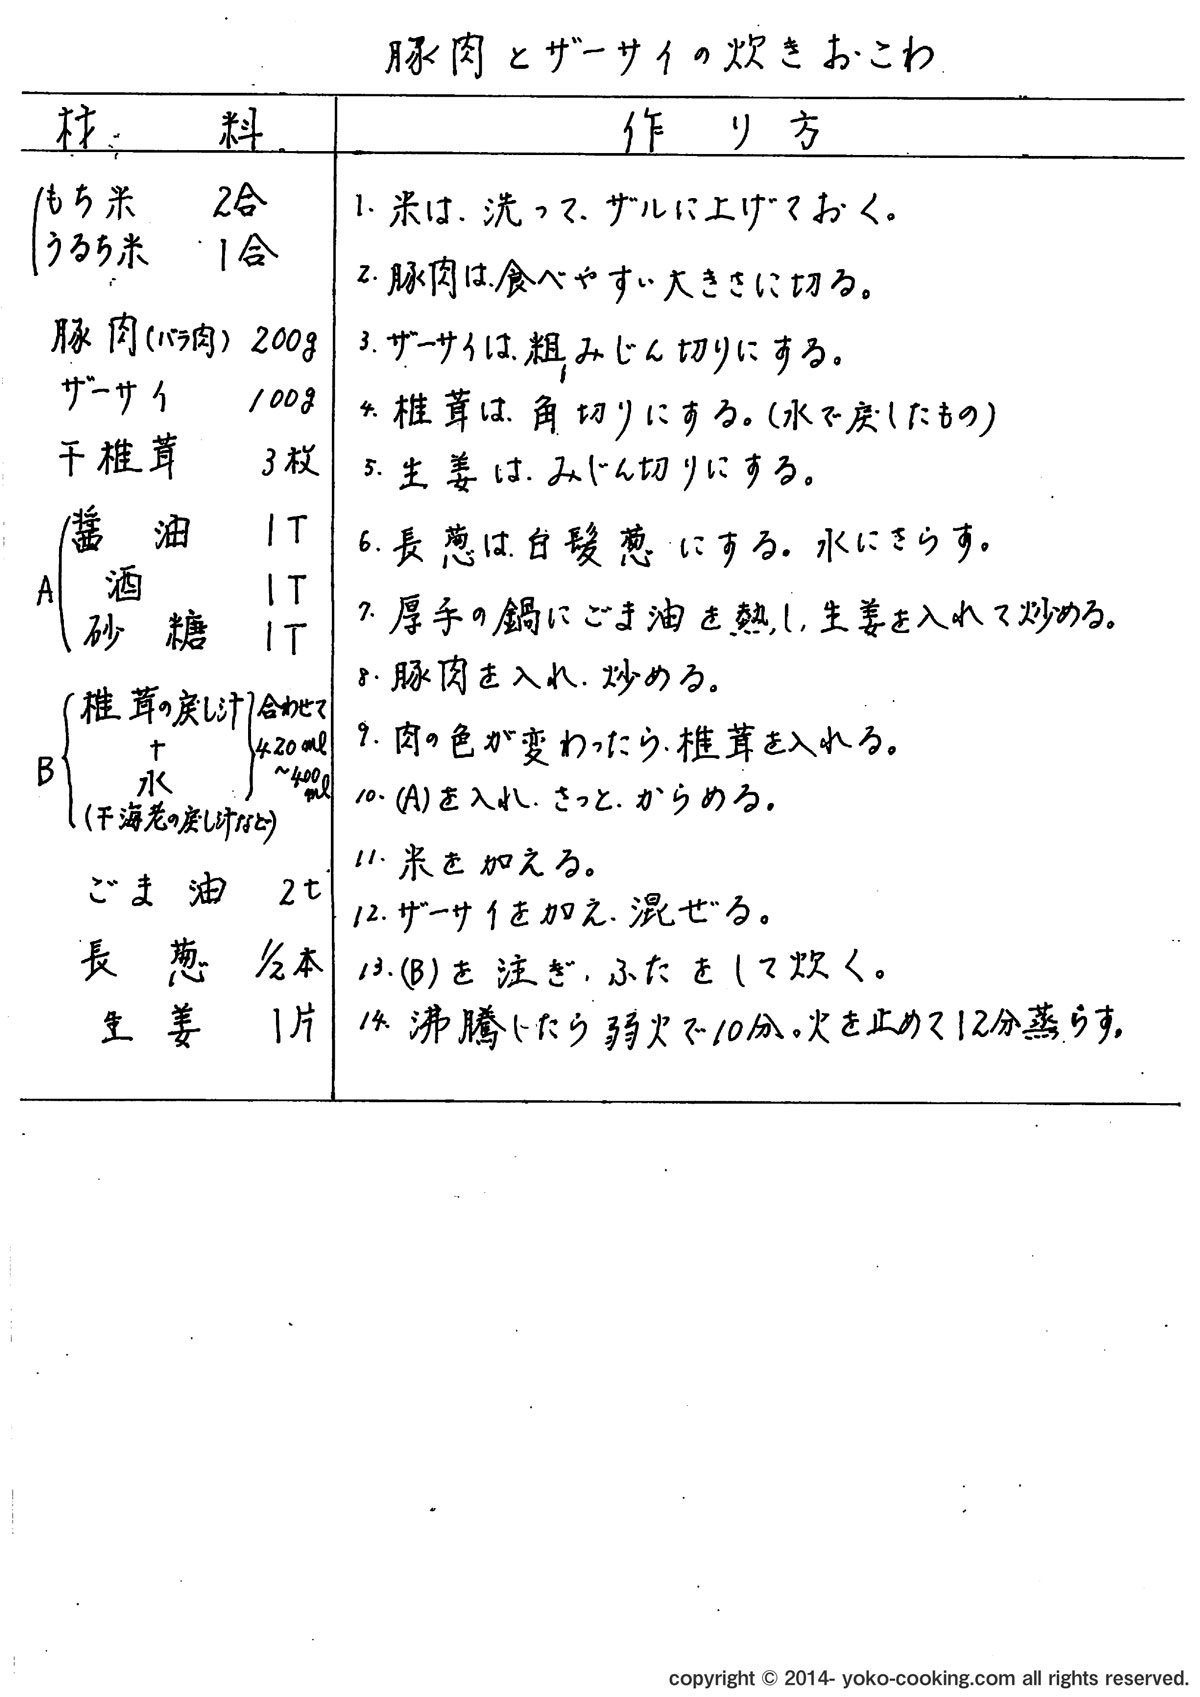 豚肉とザーサイの炊きおこわ
材料
作り方
もち米 2合
うるち米 1合
豚肉(バラ肉) 200g
ザーサイ 100g
干椎茸 3枚
A
醤油 1T
酒 1T
砂糖 1T
B
椎茸の戻し汁
+
水
(干海老の戻し汁など)
合わせて
420ml
~400
ml
ごま油 2t
長葱 1/2本
生姜 1片
1. 米は、洗って、ザルに上げておく。
2. 豚肉は、食べやすい大きさに切る。
3. ザーサイは、粗みじん切りにする。
4. 椎茸は、角切りにする。(水で戻したもの)
5. 生姜は、みじん切りにする。
6. 長葱は、白髪葱にする。水にさらす。
7. 厚手の鍋にごま油を熱し、生姜を入れて炒める。
8. 豚肉を入れ、炒める。
9. 肉の色が変わったら、椎茸を入れる。
10. (A)を入れ、さっと、からめる。
11. 米を加える。
12. ザーサイを加え、混ぜる。
13. (B)を注ぎ、ふたをして炊く。
14. 沸騰したら弱火で10分。火を止めて12分蒸らす。
copyright © 2014- yoko-cooking.com all rights reserved.